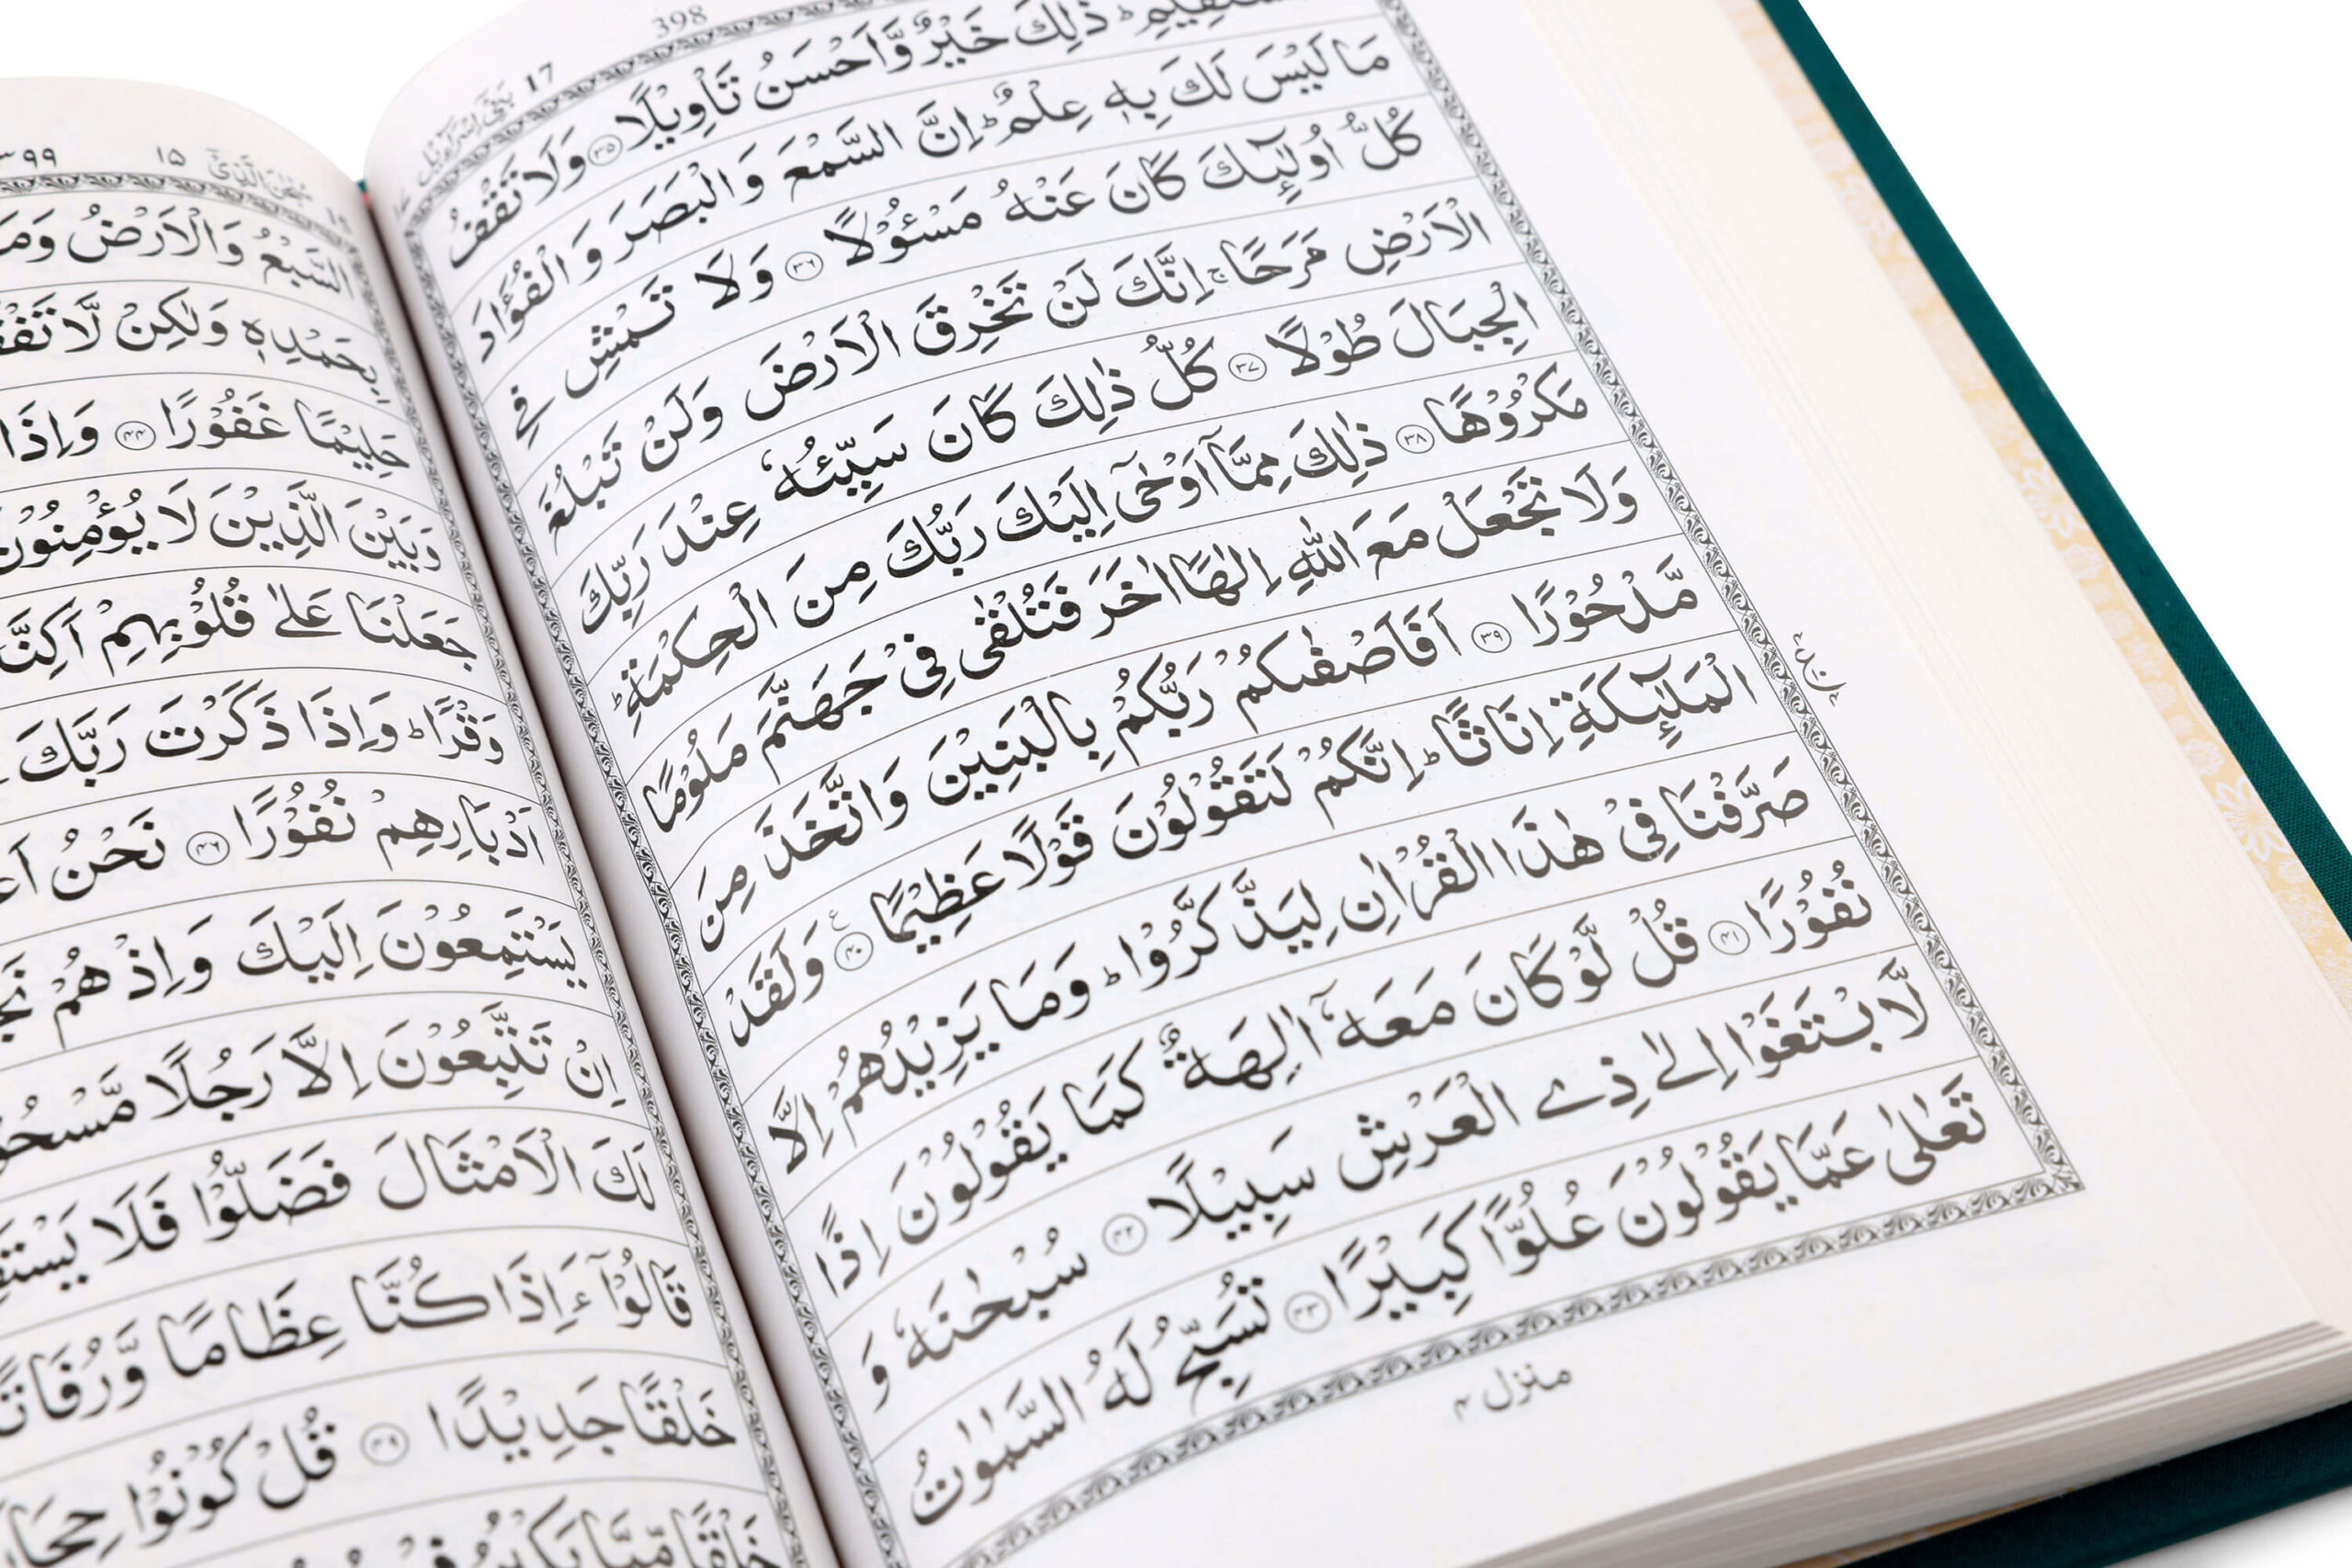 398
بنی اسرآءیل 17
ذٰلِكَ خَيْرٌ وَّاَحْسَنُ تَاْوِيْلًا ۝۳۵ وَلَا تَقْفُ
مَا لَيْسَ لَكَ بِهٖ عِلْمٌ ؕ اِنَّ السَّمْعَ وَالْبَصَرَ وَالْفُؤَادَ
كُلُّ اُولٰٓئِكَ كَانَ عَنْهُ مَسْـُٔوْلًا ۝۳۶ وَلَا تَمْشِ فِي
الْاَرْضِ مَرَحًا ۚ اِنَّكَ لَنْ تَخْرِقَ الْاَرْضَ وَلَنْ تَبْلُغَ
الْجِبَالَ طُوْلًا ۝۳۷ كُلُّ ذٰلِكَ كَانَ سَيِّئُهٗ عِنْدَ رَبِّكَ
مَكْرُوْهًا ۝۳۸ ذٰلِكَ مِمَّآ اَوْحٰٓى اِلَيْكَ رَبُّكَ مِنَ الْحِكْمَةِ ؕ
وَلَا تَجْعَلْ مَعَ اللّٰهِ اِلٰهًا اٰخَرَ فَتُلْقٰى فِيْ جَهَنَّمَ مَلُوْمًا
مَّدْحُوْرًا ۝۳۹ اَفَاَصْفٰىكُمْ رَبُّكُمْ بِالْبَنِيْنَ وَاتَّخَذَ مِنَ
الْمَلٰٓئِكَةِ اِنَاثًا ؕ اِنَّكُمْ لَتَقُوْلُوْنَ قَوْلًا عَظِيْمًا ۝۴۰ ع وَلَقَدْ
صَرَّفْنَا فِيْ هٰذَا الْقُرْاٰنِ لِيَذَّكَّرُوْا ؕ وَمَا يَزِيْدُهُمْ اِلَّا
نُفُوْرًا ۝۴۱ قُلْ لَّوْ كَانَ مَعَهٗٓ اٰلِهَةٌ كَمَا يَقُوْلُوْنَ اِذًا
لَّابْتَغَوْا اِلٰى ذِي الْعَرْشِ سَبِيْلًا ۝۴۲ سُبْحٰنَهٗ وَ
تَعٰلٰى عَمَّا يَقُوْلُوْنَ عُلُوًّا كَبِيْرًا ۝۴۳ تُسَبِّحُ لَهُ السَّمٰوٰتُ
منزل ۴
سُبْحٰنَ الَّذِيْٓ ۱۵
السَّبْعُ وَالْاَرْضُ
بِحَمْدِهٖ وَلٰكِنْ لَّا
حَلِيْمًا غَفُوْرًا ۝۴۴ وَاِذَا
وَبَيْنَ الَّذِيْنَ لَا يُؤْمِنُوْنَ
جَعَلْنَا عَلٰى قُلُوْبِهِمْ اَكِنَّ
وَقْرًا ؕ وَاِذَا ذَكَرْتَ رَبَّكَ
اَدْبَارِهِمْ نُفُوْرًا ۝۴۶ نَحْنُ
يَسْتَمِعُوْنَ اِلَيْكَ وَاِذْ هُمْ
اِنْ تَتَّبِعُوْنَ اِلَّا رَجُلًا
لَكَ الْاَمْثَالَ فَضَلُّوْا فَلَا
قَالُوْٓا ءَاِذَا كُنَّا عِظَامًا وَّرُفَاتًا
خَلْقًا جَدِيْدًا ۝۴۹ قُلْ كُوْنُوْا
خَلْقًا مِّمَّا يَكْبُرُ